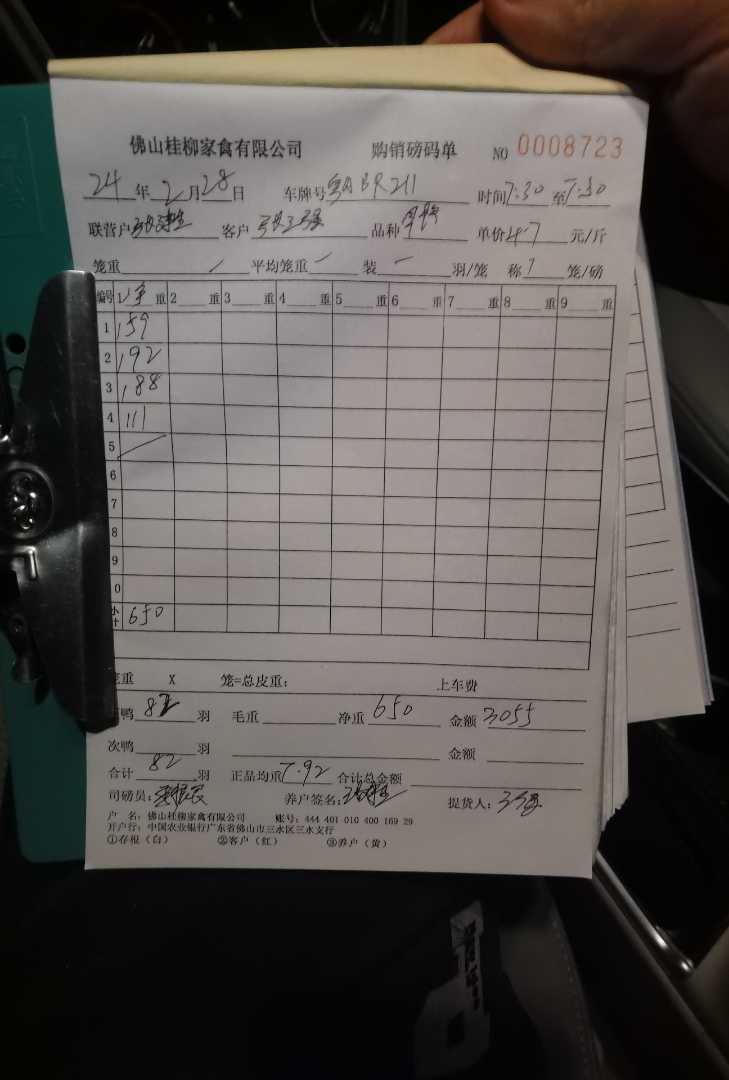 佛山桂柳家禽有限公司 购销磅码单 NO 0008723
24年2月28日 车牌号粤A 211 时间7:30至7:50
联营户 客户 品种 单价4.7元/斤
笼重 / 平均笼重 一 装 一 羽/笼 称 笼/磅
编号 1净重 2重 3重 4重 5重 6重 7重 8重 9重
1 159
2 192
3 188
4 111
5
6
7
8
9
0
小计 650
重 X 笼=总皮重: 上车费
鸭82羽 毛重 净重650 金额3055
次鸭 羽 金额
合计82羽 正品均重7.92 合计总金额
司磅员: 养户签名: 提货人:
户 名: 佛山桂柳家禽有限公司 账号: 444 401 010 400 169 29
开户行: 中国农业银行广东省佛山市三水区三水支行
①存根(白) ②客户(红) ③养户(黄)